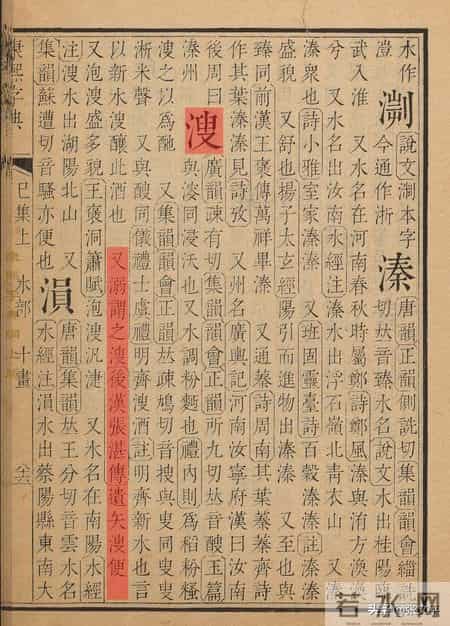 水作
豈
淛本字
說文淛本字
今通作浙
溱
唐韻側詵切集韻韻會緇詵
切𠀤音臻水名說文水出桂陽臨
武入淮 又水名在河南春秋時屬鄭詩鄭風溱與洧方渙
兮 又水名出汝南水經注溱水出浮石嶺北青衣山 又
溱衆也詩小雅室家溱溱 又班固靈臺詩百穀溱溱註
盛貌 又舒也揚子太玄經陽引而進物出溱溱 又至也與
臻同前漢王褒傳萬祥畢溱 又通蓁詩周南其葉蓁蓁齊詩
作其葉溱溱見詩攷 又州名廣輿記河南汝寧府漢曰汝南
後周曰
溱州
溲
廣韻疎有切集韻韻會正韻所九切𠀤音醙玉篇
與溞同浸沃也 又水調粉麪也禮內則爲稻粉糔
溲之以爲酏 又集韻韻會正韻𠀤疎鳩切音搜與叟同叟叟
淅米聲 又與醙同儀禮士虞禮明齊溲酒註明齊新水也言
以新水溲釀此酒也 又溺謂之溲後漢張湛傳遺矢溲便
又泡溲盛多貌王褒洞簫賦泡溲汎㴙 又水名在南陽水經
注溲水出湖陽北山 又
集韻蘇遭切音騷亦便也
溳
唐韻集韻𠀤王分切音雲水名
水經注溳水出蔡陽縣東南大
康熙字典 巳集上 水部 十畫 六六
若水网